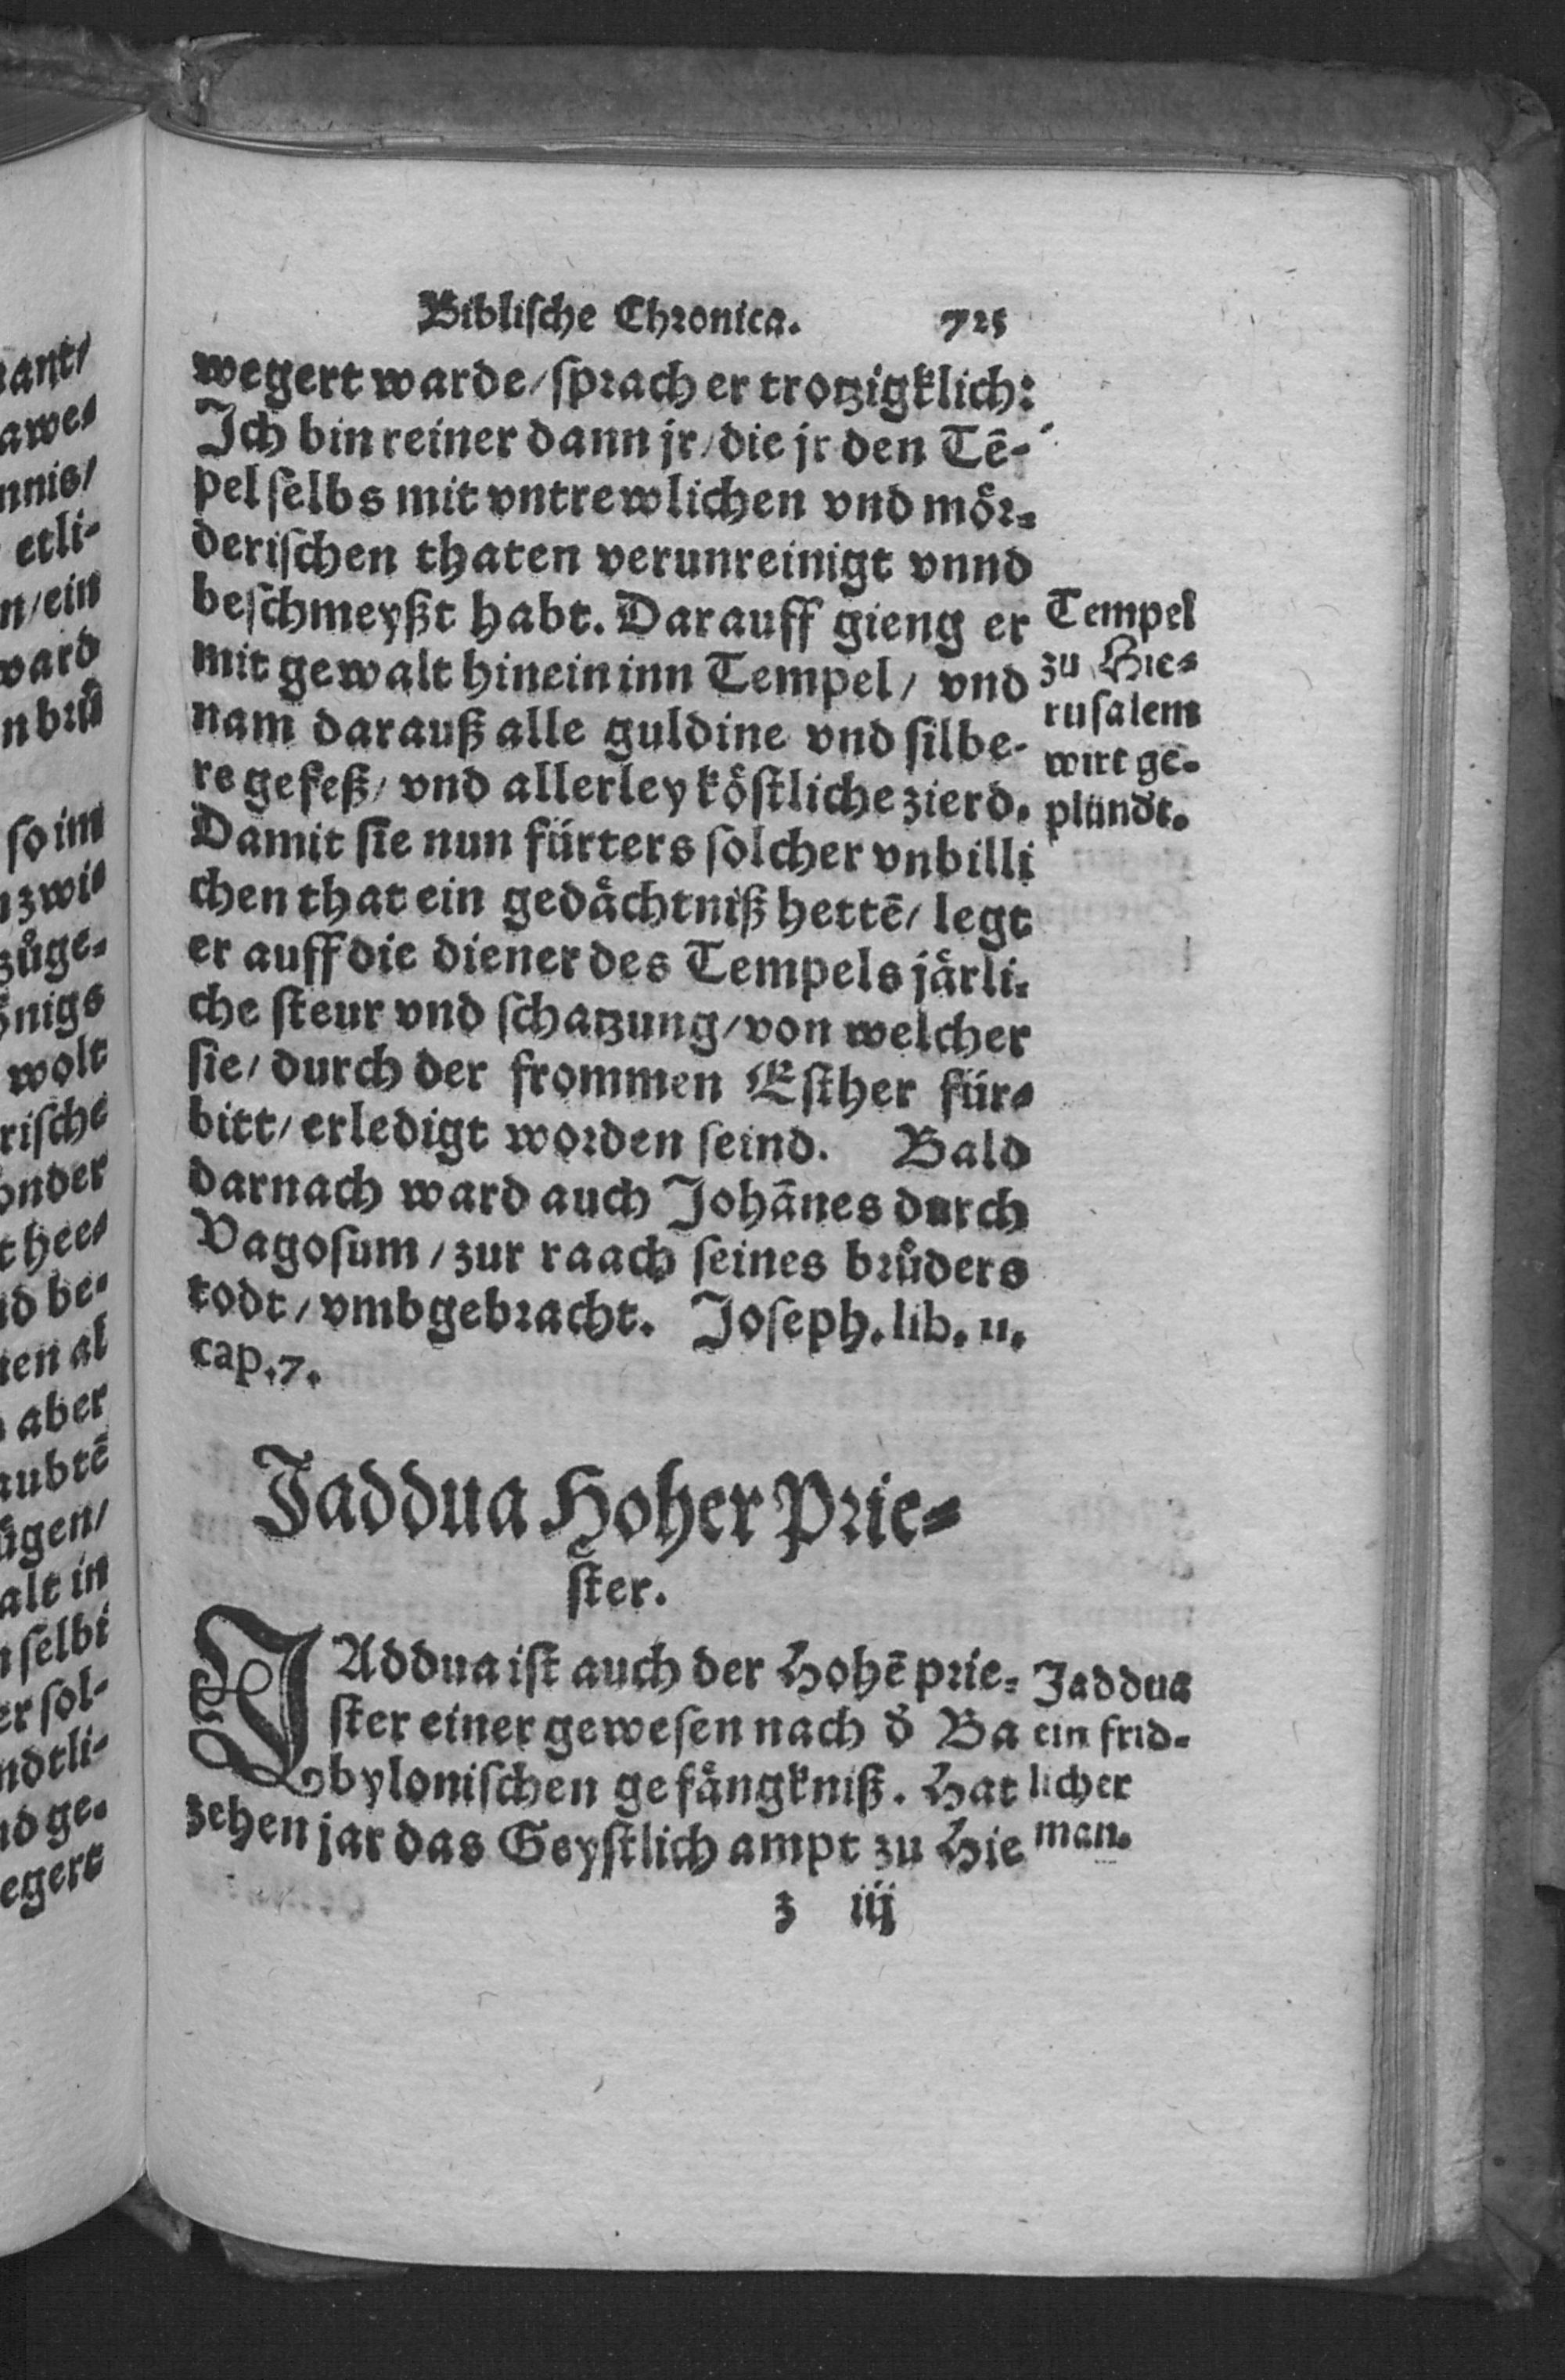 Biblische Chronica. 725
wegert warde/ sprach er trotzigklich:
Ich bin reiner dann jr/ die jr den Tē-
pel selbs mit vntrewlichen vnd moͤr-
derischen thaten verunreinigt vnnd
beschmeyßt habt. Darauff gieng er
mit gewalt hinein inn Tempel/ vnd
nam darauß alle guldine vnd silbe-
re gefeß/ vnd allerley koͤstliche zierd.
Damit sie nun fürters solcher vnbilli
chen that ein gedaͤchtniß hettē/ legt
er auff die diener des Tempels jaͤrli-
che steur vnd schatzung/ von welcher
sie/ durch der frommen Esther für-
bitt/ erledigt worden seind. Bald
darnach ward auch Johānes durch
Vagosum/ zur raach seines bruͦders
todt/ vmbgebracht. Joseph. lib. 11.
cap. 7.
Tempel
zu Hie-
rusalem
wirt ge-
plündt.
Jaddua Hoher Prie-
ster.
JAddua ist auch der Hohē prie-
ster einer gewesen nach d̄ Ba
bylonischen gefaͤngkniß. Hat
zehen jar das Geystlich ampt zu Hie
Jaddua
ein frid-
licher
man.
z iij
rant/
awe-
nnis/
etli-
n/ ein
ward
so im
zwi-
zuͦge-
oͤnigs
wolt
rische
onder
thee-
nd be-
ten al
aber
aubtē
uͤgen/
alt in
selbi
er sol-
ndtli-
nd ge-
egert